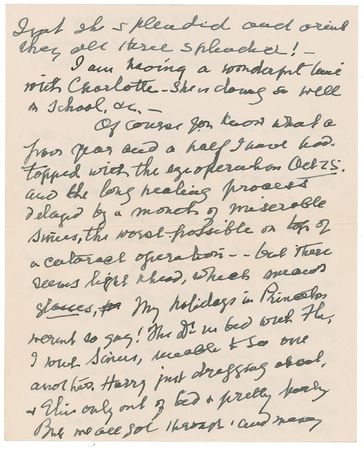 Isn't she splendid and aren't
they all three splendid! —
I am having a wonderful time
with Charlotte - she is doing so well
in school, &c. —
Of course you know what a
poor year and a half I have had.
topped with the eye operation Oct 25.
and the long healing process
delayed by a month of miserable
sinus, the worst possible on top of
a cataract operation -- but there
seems light ahead, which means
glasses, My holidays in Princeton
weren't so gay! The Dr. in bed with Flu,
I with Sinus, unable to see one
another, Harry just dragging about,
& only out of bed & pretty
But we all got through, and many